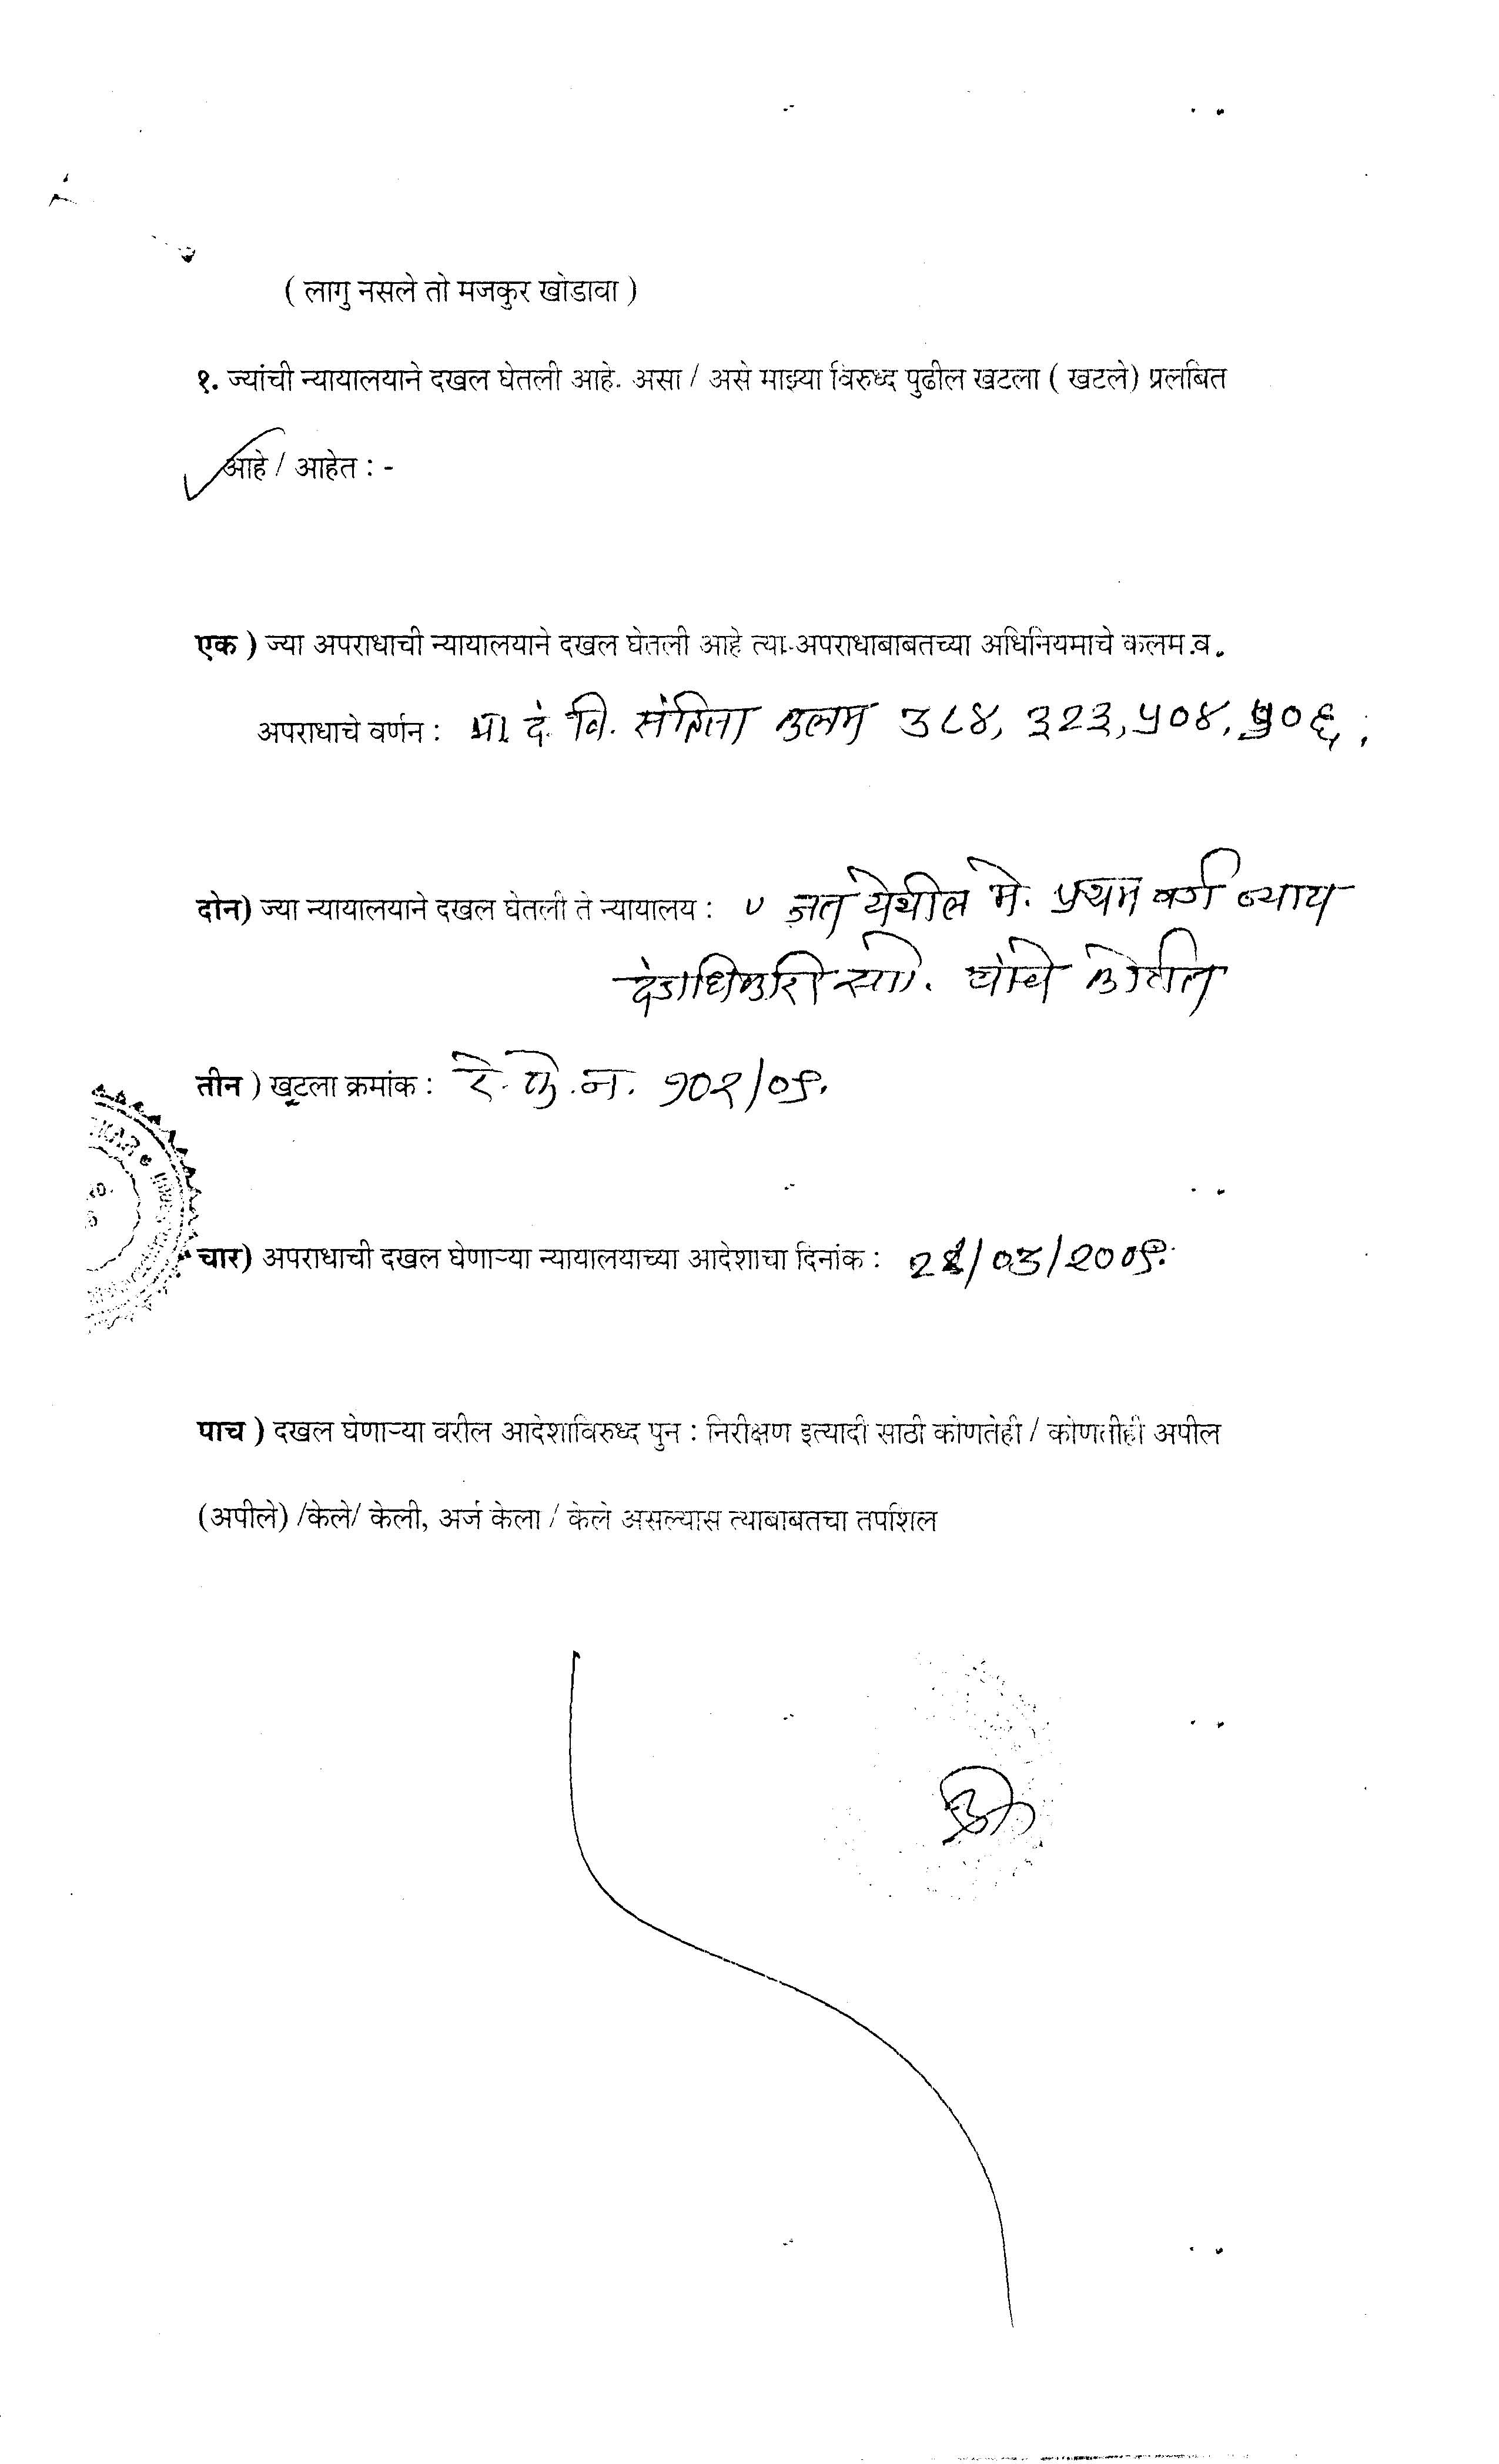 ( लागु नसले तो मजकुर खोडावा )
१. ज्यांची न्यायालयाने दखल घेतली आहे. असा / असे माझ्या विरुध्द पुढील खटला ( खटले) प्रलबित
आहे / आहेत : -
एक ) ज्या अपराधाची न्यायालयाने दखल घेतली आहे त्या अपराधाबाबतच्या अधिनियमाचे कलम.व.
अपराधाचे वर्णन : भा. दं. वि. संहिता कलम ३८४, ३२३, ५०४, ५०६,
दोन) ज्या न्यायालयाने दखल घेतली ते न्यायालय : जत येथील मे. प्रथम वर्ग न्याय
दंडाधिकारी सो. यांचे कोर्टात
तीन ) खटला क्रमांक : रे. के. न. १०२/०९.
चार) अपराधाची दखल घेणाऱ्या न्यायालयाच्या आदेशाचा दिनांक : /०३/२००९.
पाच ) दखल घेणाऱ्या वरील आदेशाविरुध्द पुन : निरीक्षण इत्यादी साठी कोणतेही / कोणतीही अपील
(अपीले) /केले/ केली, अर्ज केला / केले असल्यास त्याबाबतचा तपशिल
KAR